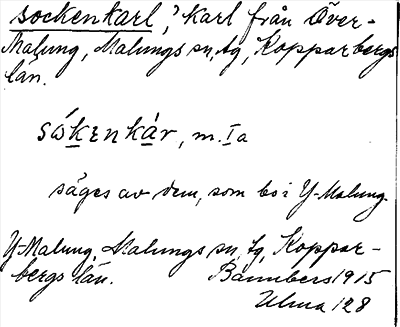 sockenkarl, 'karl från Över-
Malung, Malungs sn, tg, Kopparbergs
län.
sókenkár, m. Ia
säges av dem, som bo i Y-Malung.
Y-Malung, Malungs sn, tg, Koppar-
bergs län. Bannbers 1915
Ulma 128